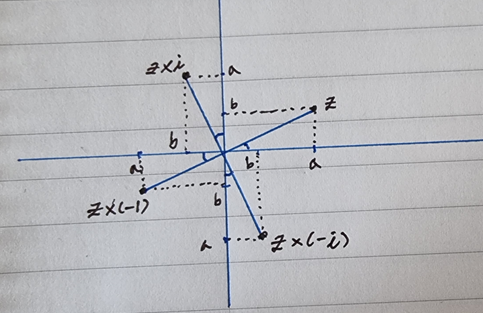 z×i
a
b
z
b
b
a
a
z×(-1)
b
a
z×(-i)